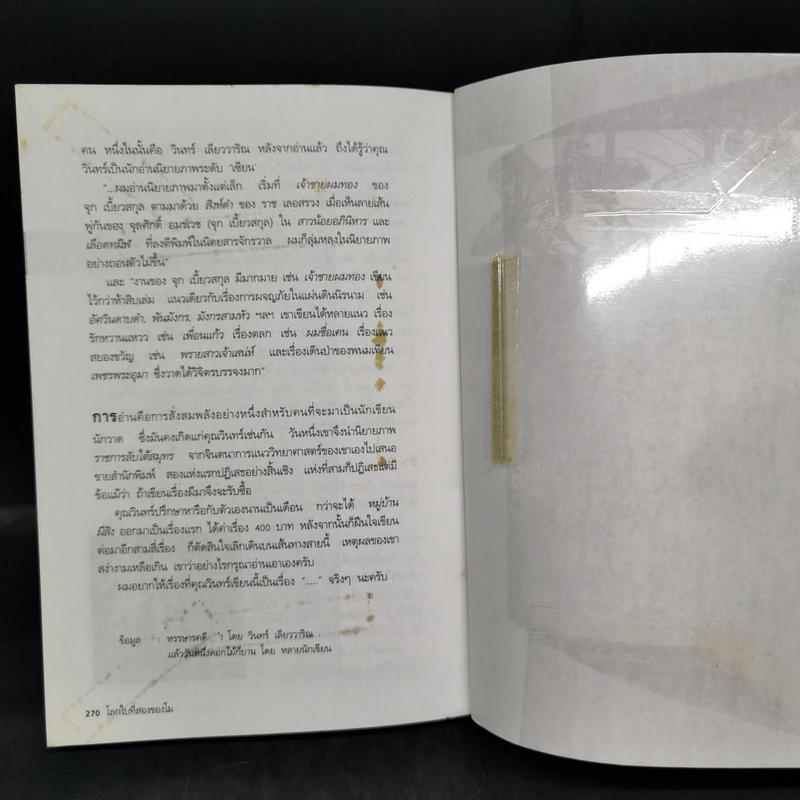 คน หนึ่งในนั้นคือ วินทร์ เลียววาริณ หลังจากอ่านแล้ว ถึงได้รู้ว่าคุณ
วินทร์เป็นนักอ่านนิยายภาพระดับ 'เซียน'
"...ผมอ่านนิยายภาพมาตั้งแต่เล็ก เริ่มที่ เจ้าชายผมทอง ของ
จุก เบี้ยวสกุล ตามมาด้วย สิงห์ดำ ของ ราช เลอสรวง เมื่อเห็นลายเส้น
พู่กันของ จุลศักดิ์ อมรเวช (จุก เบี้ยวสกุล) ใน สาวน้อยอภินิหาร และ
เลือดทมิฬ ที่ลงตีพิมพ์ในนิตยสารจักรวาล ผมก็ลุ่มหลงในนิยายภาพ
อย่างถอนตัวไม่ขึ้น"
และ "งานของ จุก เบี้ยวสกุล มีมากมาย เช่น เจ้าชายผมทอง เขียน
ไว้กว่าห้าสิบเล่ม แนวเดียวกับเรื่องการผจญภัยในแผ่นดินนิรนาม เช่น
อัศวินดาบดำ, พันมังกร, มังกรสามหัว ฯลฯ เขาเขียนได้หลายแนว เรื่อง
รักหวานแหวว เช่น เพื่อนแก้ว เรื่องตลก เช่น ผมชื่อเคน เรื่องแนว
สยองขวัญ เช่น พรายสาวเจ้าเสน่ห์ และเรื่องเดินป่าของพนมเทียน
เพชรพระอุมา ซึ่งวาดได้วิจิตรบรรจงมาก"
การอ่านคือการสั่งสมพลังอย่างหนึ่งสำหรับคนที่จะมาเป็นนักเขียน
นักวาด ซึ่งมันคงเกิดแก่คุณวินทร์เช่นกัน วันหนึ่งเขาจึงนำนิยายภาพ
ราชการลับใต้สมุทร จากจินตนาการแนววิทยาศาสตร์ของเขาเองไปเสนอ
ขายสำนักพิมพ์ สองแห่งแรกปฏิเสธอย่างสิ้นเชิง แห่งที่สามก็ปฏิเสธแต่มี
ข้อแม้ว่า ถ้าเขียนเรื่องผีมาจึงจะรับซื้อ
คุณวินทร์ปรึกษาหารือกับตัวเองนานเป็นเดือน กว่าจะได้ หมู่บ้าน
ผีสิง ออกมาเป็นเรื่องแรก ได้ค่าเรื่อง 400 บาท หลังจากนั้นก็ฝืนใจเขียน
ต่อมาอีกสามสี่เรื่อง ก็ตัดสินใจเลิกเดินบนเส้นทางสายนี้ เหตุผลของเขา
สง่างามเหลือเกิน เขาว่าอย่างไรกรุณาอ่านเอาเองครับ
ผมอยากให้เรื่องที่คุณวินทร์เขียนนี้เป็นเรื่อง "....." จริงๆ นะครับ
ข้อมูล : หรรษารคดี โดย วินทร์ เลียววาริณ
แล้ววันหนึ่งดอกไม้ก็บาน โดย หลายนักเขียน
270 โลกใบที่สองของโม